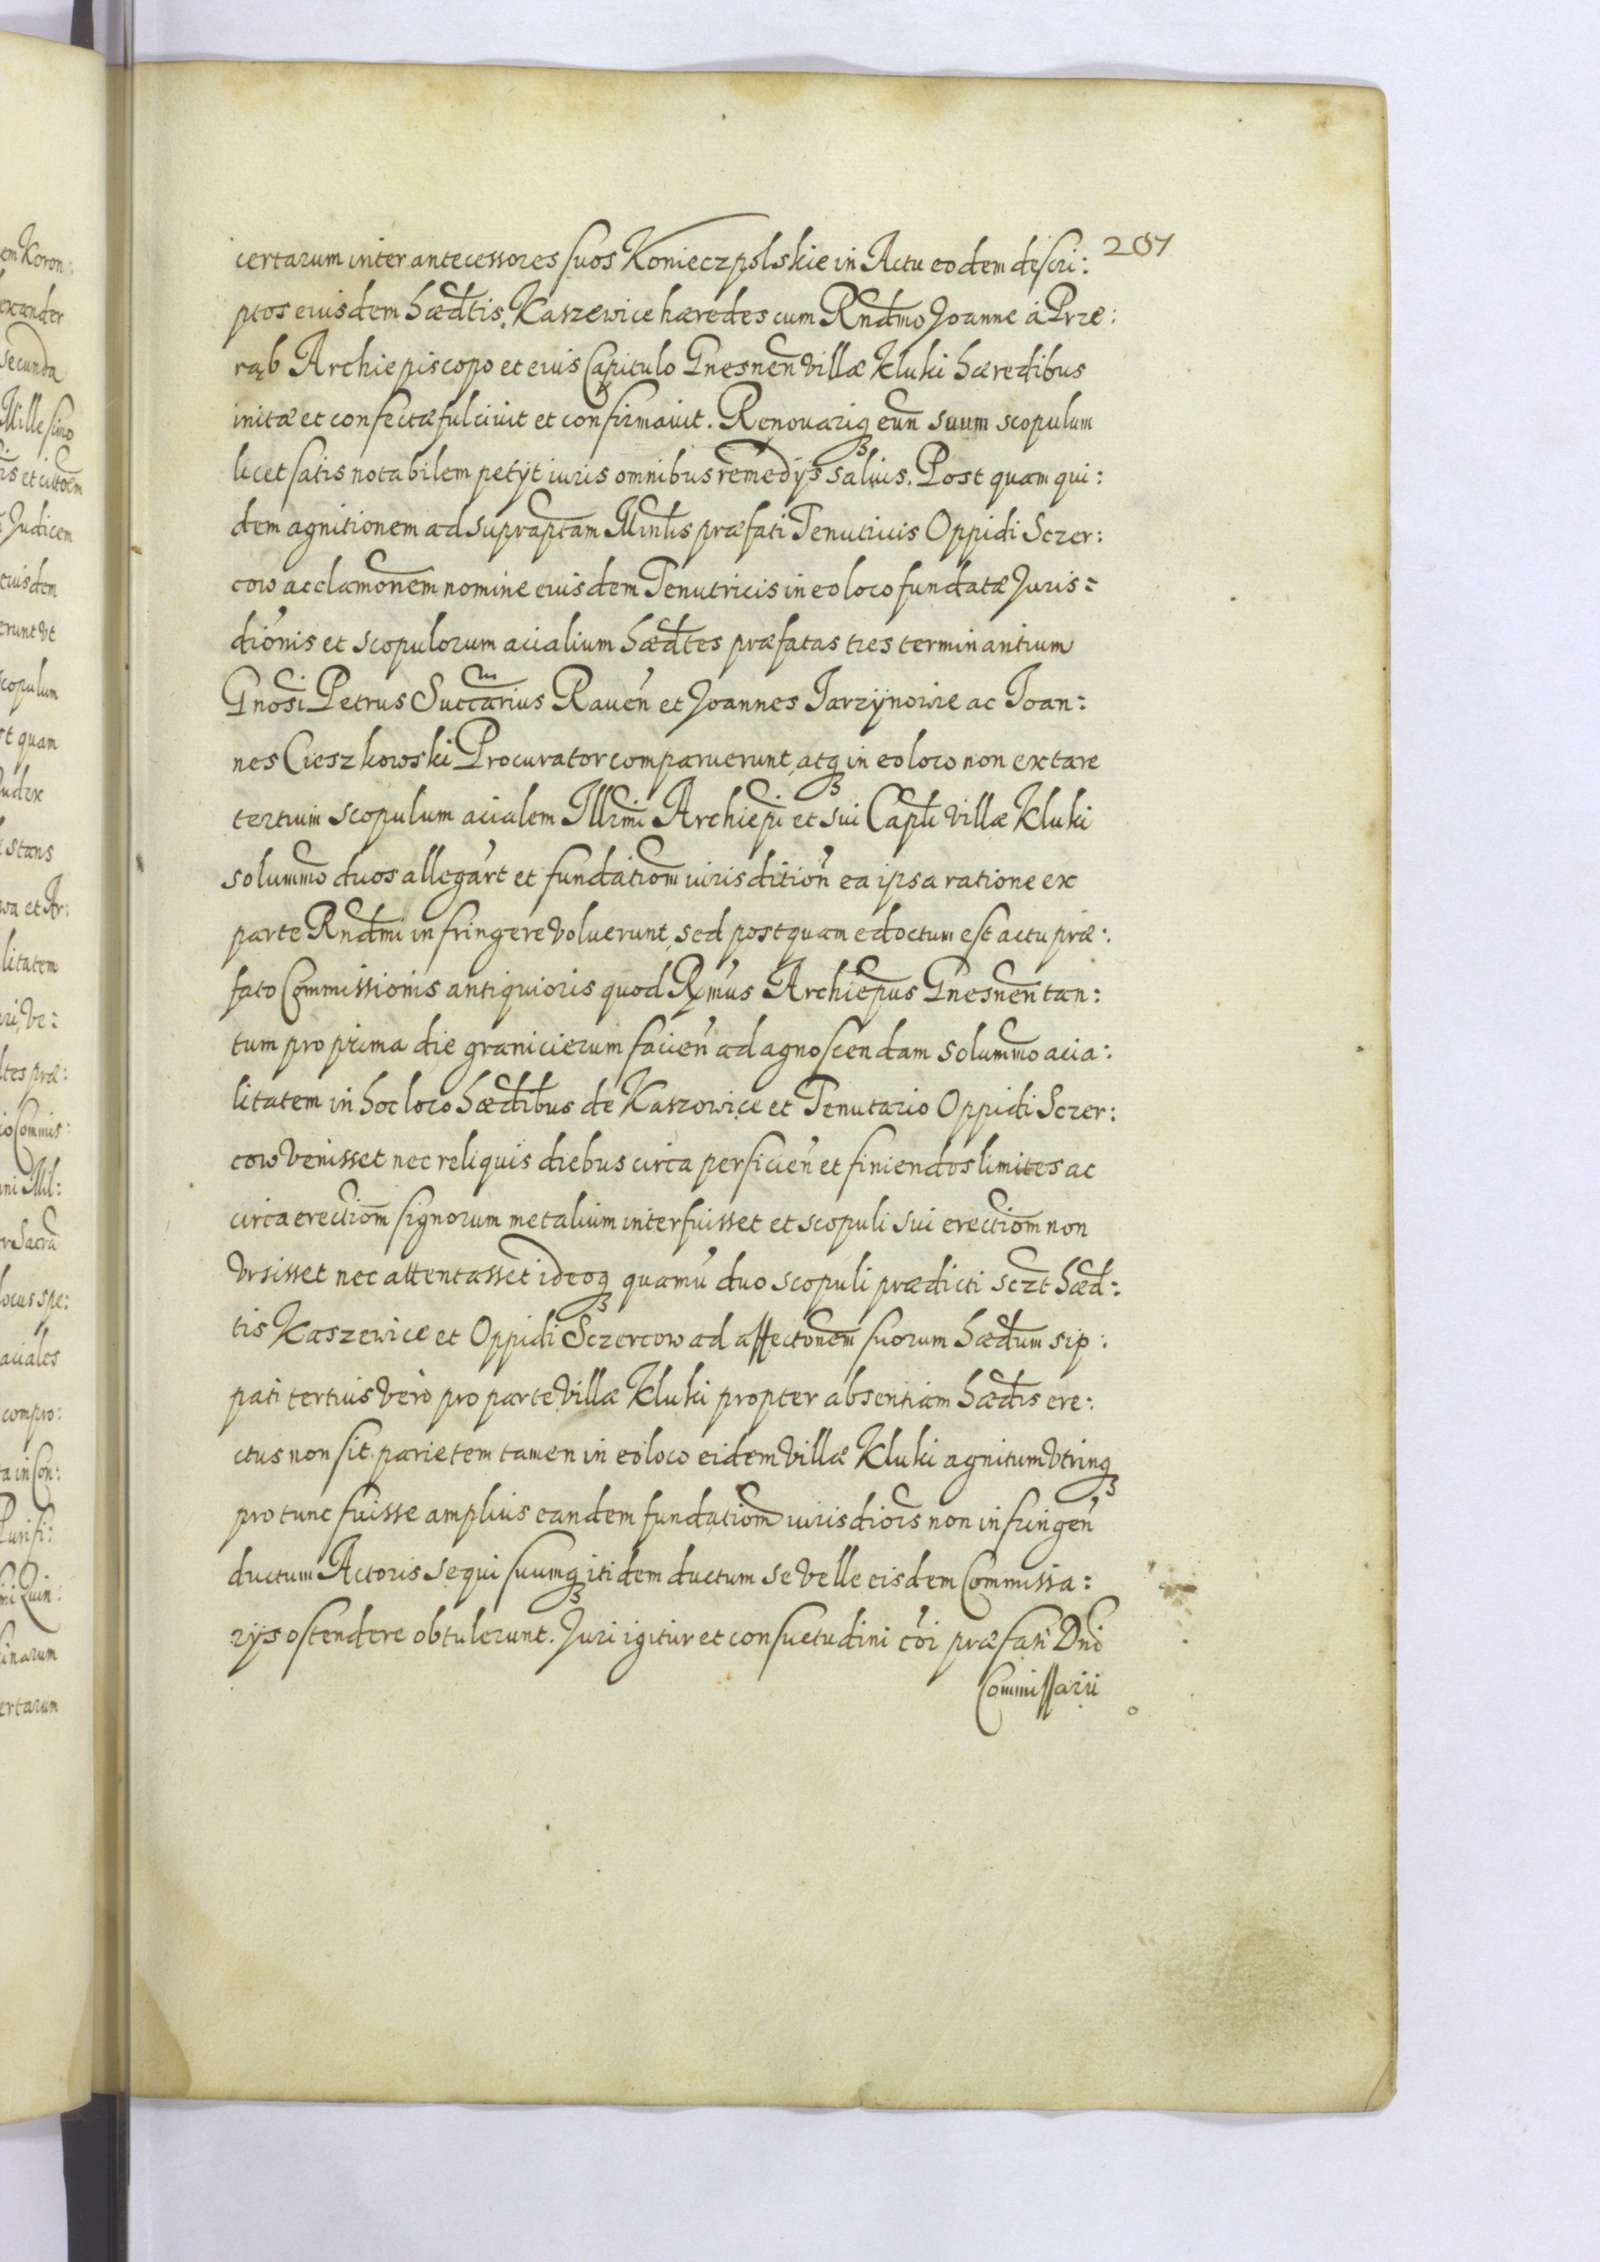 207
certarum inter antecessores suos Konieczpolskie in Actu eodem descri:
ptos eiusdem hædtis Kaszewice hæredes cum Rndmo Joanne à Prze:
rąb Archiepiscopo et eius Capitulo Gnesnen villæ Kluki hæredibus
initæ et confectæ fulciuit et confirmauit. Renouariq eun suum scopulum
licet satis notabilem petÿt iuris omnibus remedÿs saluis. Post quam qui:
dem agnitionem ad supraptam Minlis præfati Tenutricis Oppidi Sczer:
cow acclamonem nomine eiusdem Tenutricis in eo loco fundatæ Juris:
dionis et scopulorum acialium hædtes præfatas tres terminantium
Gnosi Petrus Succarius Rauen et Joannes Jarzÿnowie ac Joan:
nes Cieszkowski Procurator comparuerunt, atq in eo loco non extare
tertium scopulum acialem Illrmi Archiepi et sui Capli villæ Kluki
solummo duos allegart et fundationm iurisdition ea ipsa ratione ex
parte Rndmi infringere voluerunt, sed postquam edoctum est actu præ:
fato Commissionis antiquioris quod Rmus Archiepus Gnesnen tan:
tum pro prima die granicierum facien ad agnoscendam solummo acia:
litatem in hoc loco hædibus de Kaszowice et Tenutario Oppidi Sczer:
cow venisset nec reliquis diebus circa perficien et finiendos limites ac
circa erectiom signorum metalium interfuisset et scopuli sui erectiom non
vrsisset nec attentasset ideoq quamu duo scopuli prædicti sczt hæd:
tis Kaszewice et Oppidi Sczercow ad affectonem suorum hædum sip:
pati tertius vero pro parte villæ Kluki propter absentiam hædis ere:
ctus non sit. parietem tamen in eo loco eidem villæ Kluki agnitum vtrinq
pro tunc fuisse amplius eandem fundatiom iurisdiois non infringen
ductum Actoris sequi suumq itidem ductum se velle eisdem Commissa:
rÿs ostendere obtulerunt. Juri igitur et consuetudini coi præfati Dni
Commissarii